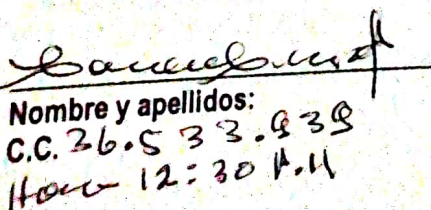 Nombre y apellidos:
C.C. 36.533.939
Hora 12:30 P.M